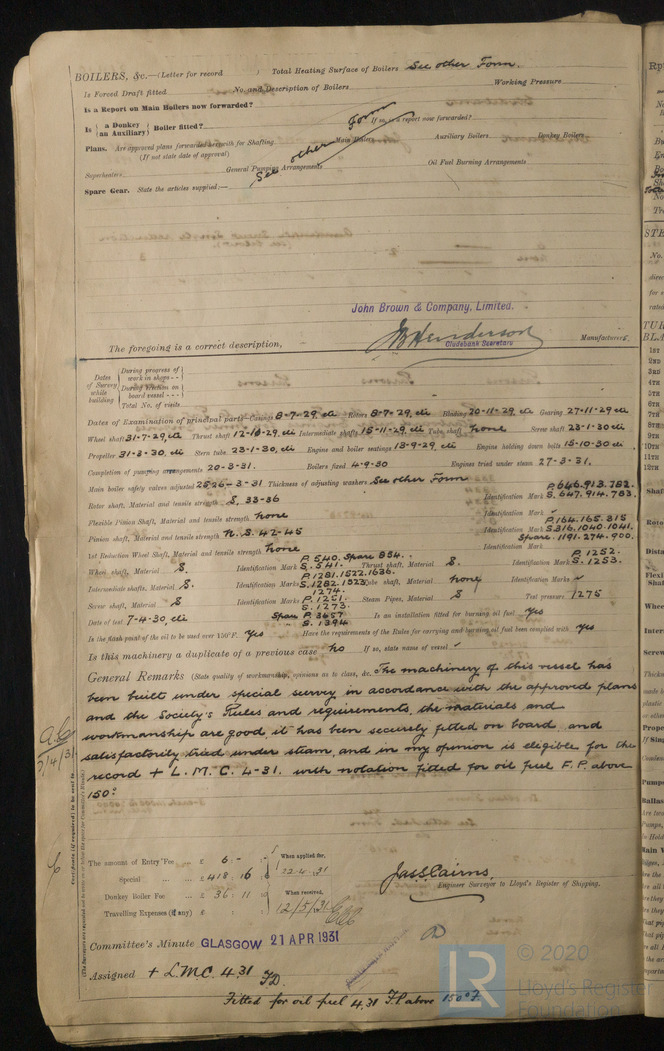 BOILERS, &c.—(Letter for record ) Total Heating Surface of Boilers See other Form.
Is Forced Draft fitted No. and Description of Boilers Working Pressure
Is a Report on Main Boilers now forwarded?
Is { a Donkey / an Auxiliary } Boiler fitted? If so, is a report now forwarded?
Plans. Are approved plans forwarded herewith for Shafting Main Boilers Auxiliary Boilers Donkey Boilers
(If not state date of approval)
Superheaters General Pumping Arrangements Oil Fuel Burning Arrangements
See other Form
Spare Gear. State the articles supplied:—
John Brown & Company, Limited.
J Henderson
Clydebank Secretary
The foregoing is a correct description, Manufacturer.
Dates of Survey while building
During progress of work in shops - -
During erection on board vessel - - -
Total No. of visits
Dates of Examination of principal parts—Casings 8-7-29, etc Rotors 8-7-29, etc Blading 20-11-29, etc Gearing 27-11-29 etc
Wheel shaft 31-7-29, etc Thrust shaft 12-10-29, etc Intermediate shafts 15-11-29 etc Tube shaft none Screw shaft 23-1-30 etc
Propeller 31-3-30, etc Stern tube 23-1-30, etc Engine and boiler seatings 13-9-29, etc Engine holding down bolts 15-10-30 etc
Completion of pumping arrangements 20-3-31. Boilers fixed 4-9-30 Engines tried under steam 27-3-31.
Main boiler safety valves adjusted 25 26-3-31 Thickness of adjusting washers See other Form
Rotor shaft, Material and tensile strength S, 33-36 Identification Mark P. 646.913.782. S. 647.914.783.
Flexible Pinion Shaft, Material and tensile strength none Identification Mark
Pinion shaft, Material and tensile strength N. S. 42-45 Identification Mark P. 164.165.315 S 316.1040.1041. Spare. 1191.274.900.
1st Reduction Wheel Shaft, Material and tensile strength none Identification Mark
Wheel shaft, Material S. Identification Mark P. 540. Spare 854. S. 541. Thrust shaft, Material S. Identification Mark P. 1252. S. 1253.
Intermediate shafts, Material S. Identification Marks P. 1281.1522.1636. S. 1282.1523. 1274. Tube shaft, Material none Identification Marks
Screw shaft, Material S Identification Marks P. 1251. S. 1273. Spare P. 3657 S. 1394 Steam Pipes, Material S Test pressure 1275
Date of test 7-4-30, etc Is an installation fitted for burning oil fuel yes
Is the flash point of the oil to be used over 150°F. yes Have the requirements of the Rules for carrying and burning oil fuel been complied with yes
Is this machinery a duplicate of a previous case no If so, state name of vessel
General Remarks (State quality of workmanship, opinions as to class, &c. The machinery of this vessel has
been built under special survey in accordance with the approved plans
and the Society's Rules and requirements, the materials and
workmanship are good, it has been securely fitted on board and
satisfactorily tried under steam, and in my opinion is eligible for the
record + L.M.C. 4-31. with notation fitted for oil fuel F.P. above
150°
The amount of Entry Fee £ 6 : - When applied for,
Special £ 418 : 16 22-4-31
Donkey Boiler Fee £ 36 : 11 When received,
Travelling Expenses (if any) £ : 12/5/31
Jas S. Cairns.
Engineer Surveyor to Lloyd's Register of Shipping.
Committee's Minute GLASGOW 21 APR 1931
Assigned + L.M.C. 4 31 F.D.
Fitted for oil fuel 4.31 F.P. above 150°F.
© 2020
LR
Lloyd's Register
Foundation